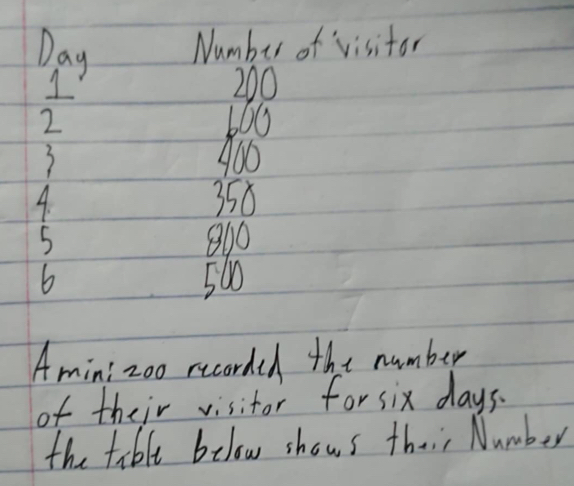 Day Number of visitor
1 200
2 600
3 400
4 350
5 800
6 500
A mini zoo recorded the number
of their visitor for six days.
the table below shows their Number